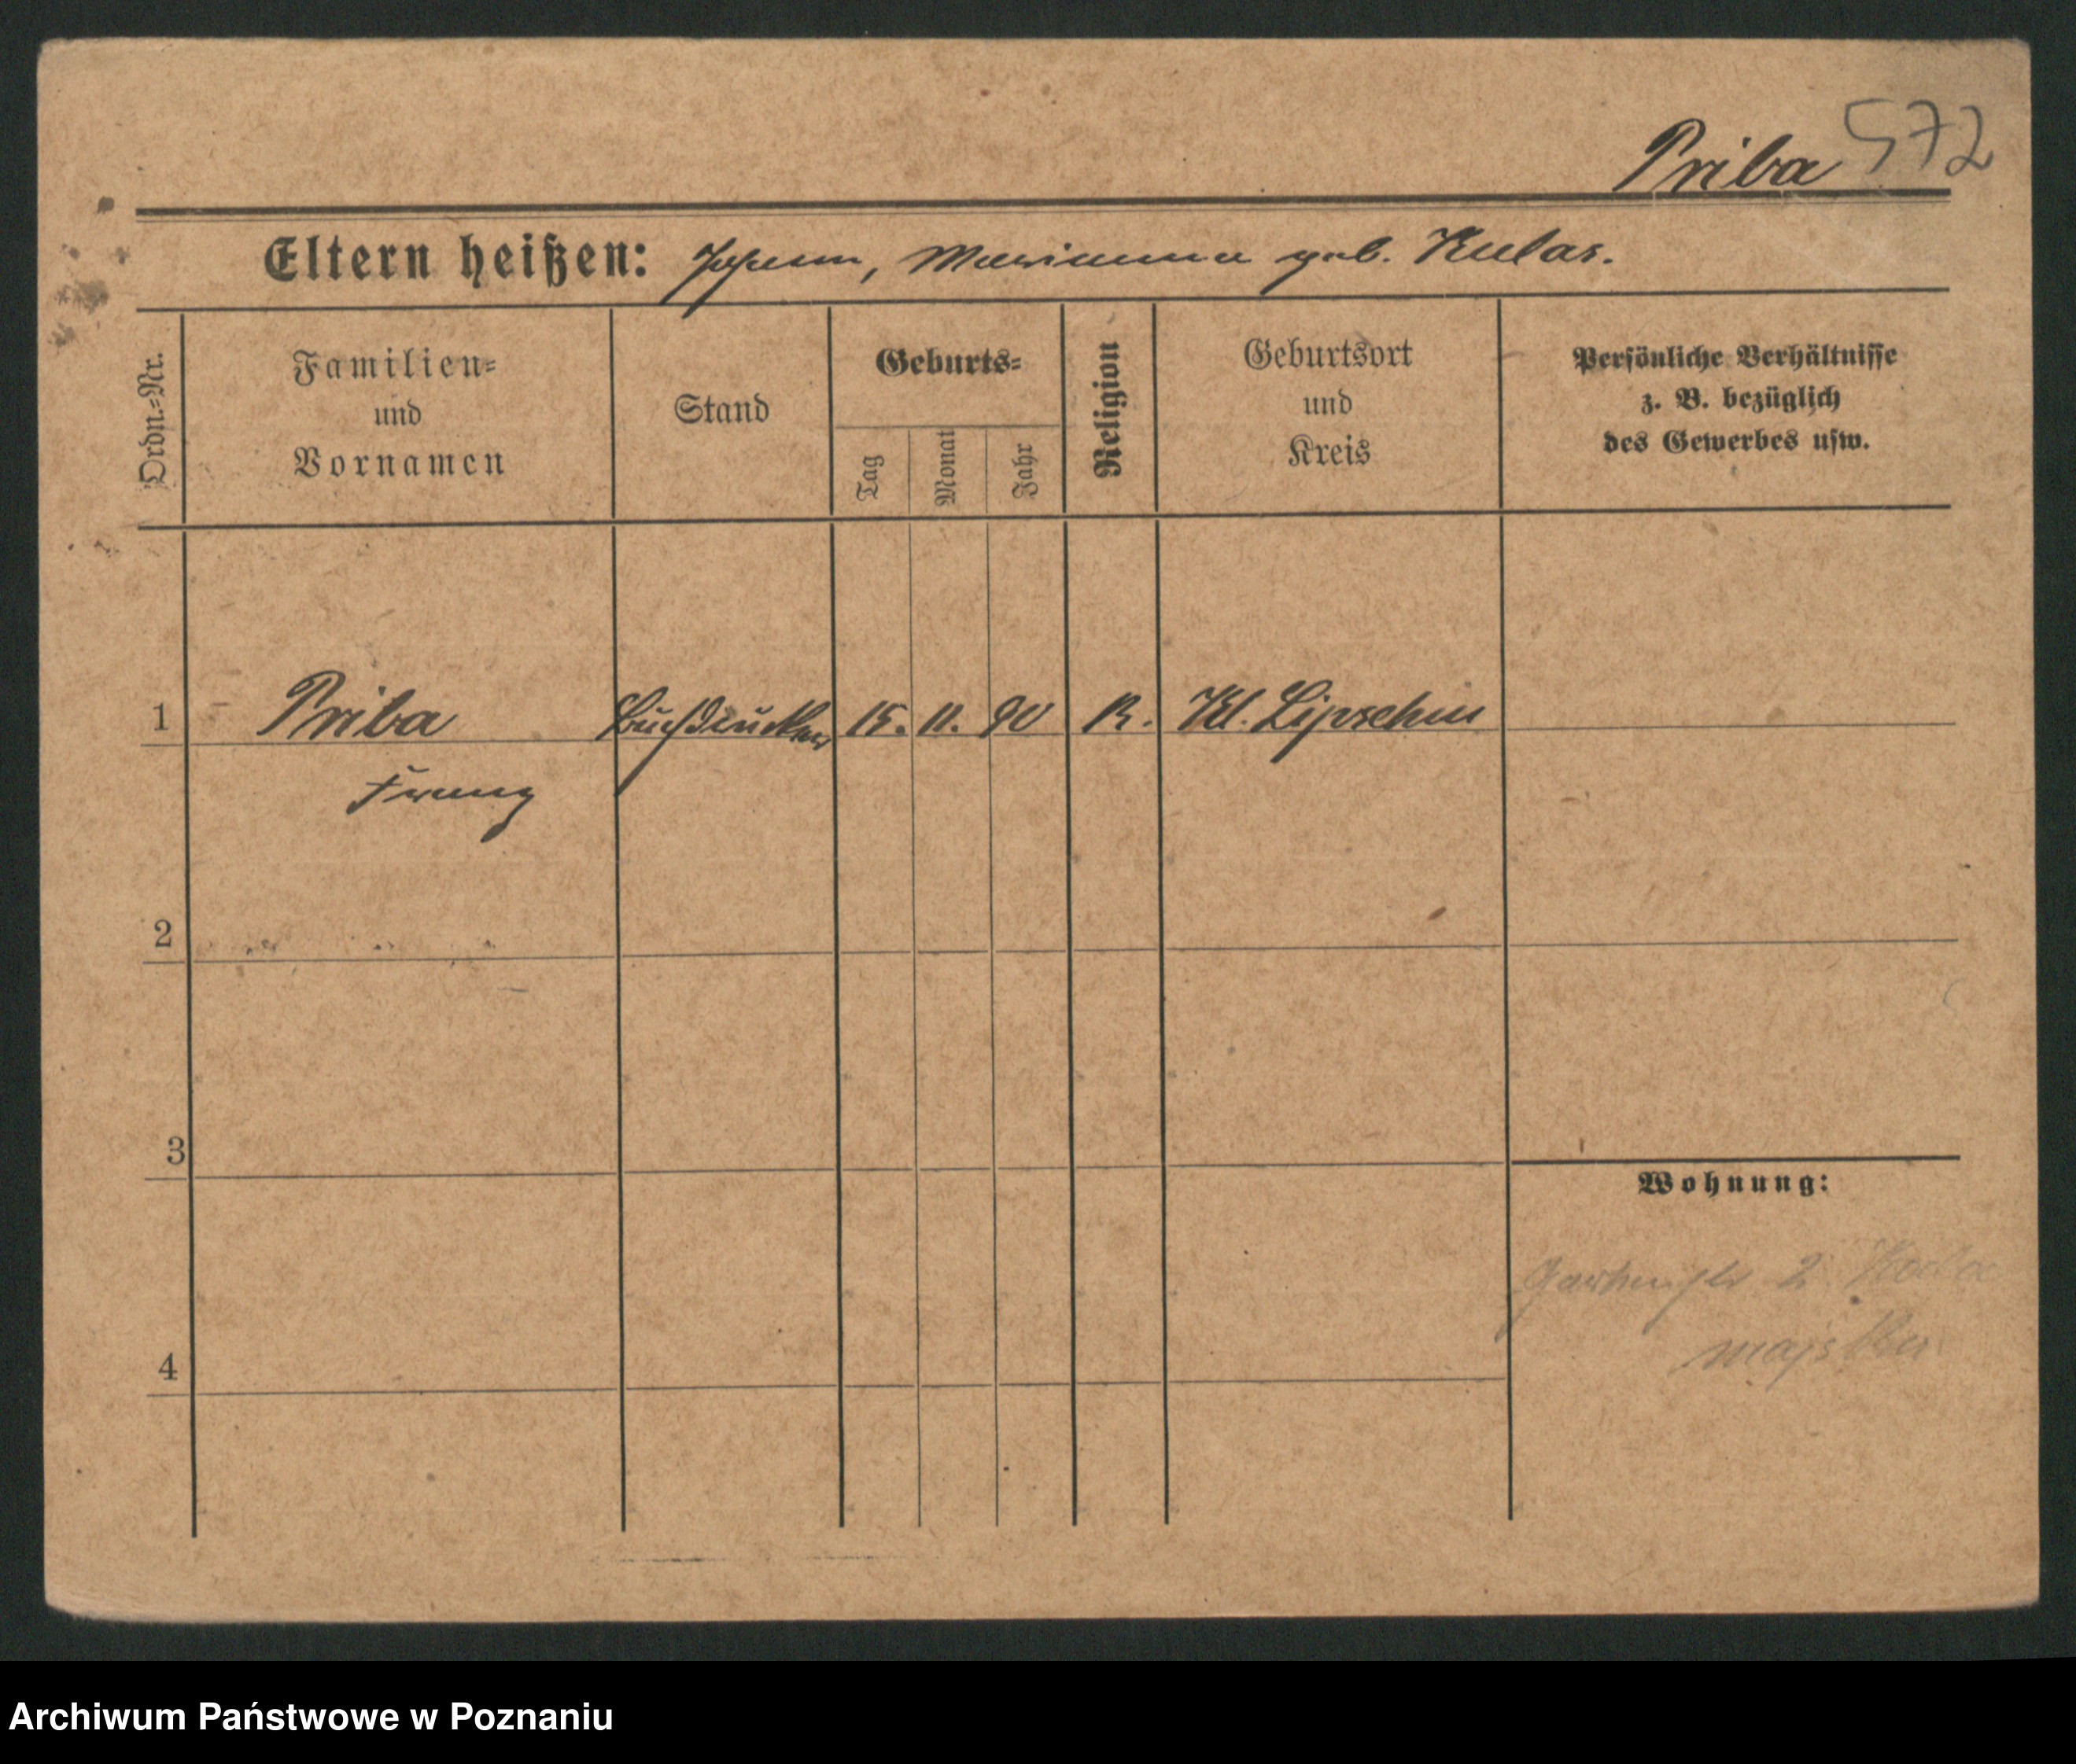 Priba 572
Eltern heißen: Johann, Marianna geb. Kulas.
Ordn.=Nr.
Familien=
und
Vornamen
Stand
Geburts=
Tag
Monat
Jahr
Religion
Geburtsort
und
Kreis
Persönliche Verhältnisse
z. B. bezüglich
des Gewerbes usw.
1 Priba Buchdrucker 15. 11. 90 R. Kl. Lipschin
Franz
2
3
Wohnung:
2
4
Archiwum Państwowe w Poznaniu